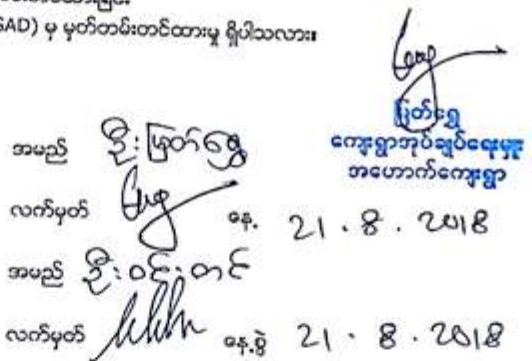 (GAD) မှ မှတ်တမ်းတင်ထားမှု ရှိပါသလား။
မြတ်ရွှေ
ကျေးရွာအုပ်ချုပ်ရေးမှူး
အဟောက်ကျေးရွာ
အမည် ဦးမြတ်ရွှေ
လက်မှတ် နေ့ 21.8.2018
အမည် ဦးဝင်းတင်
လက်မှတ် နေ့စွဲ 21.8.2018